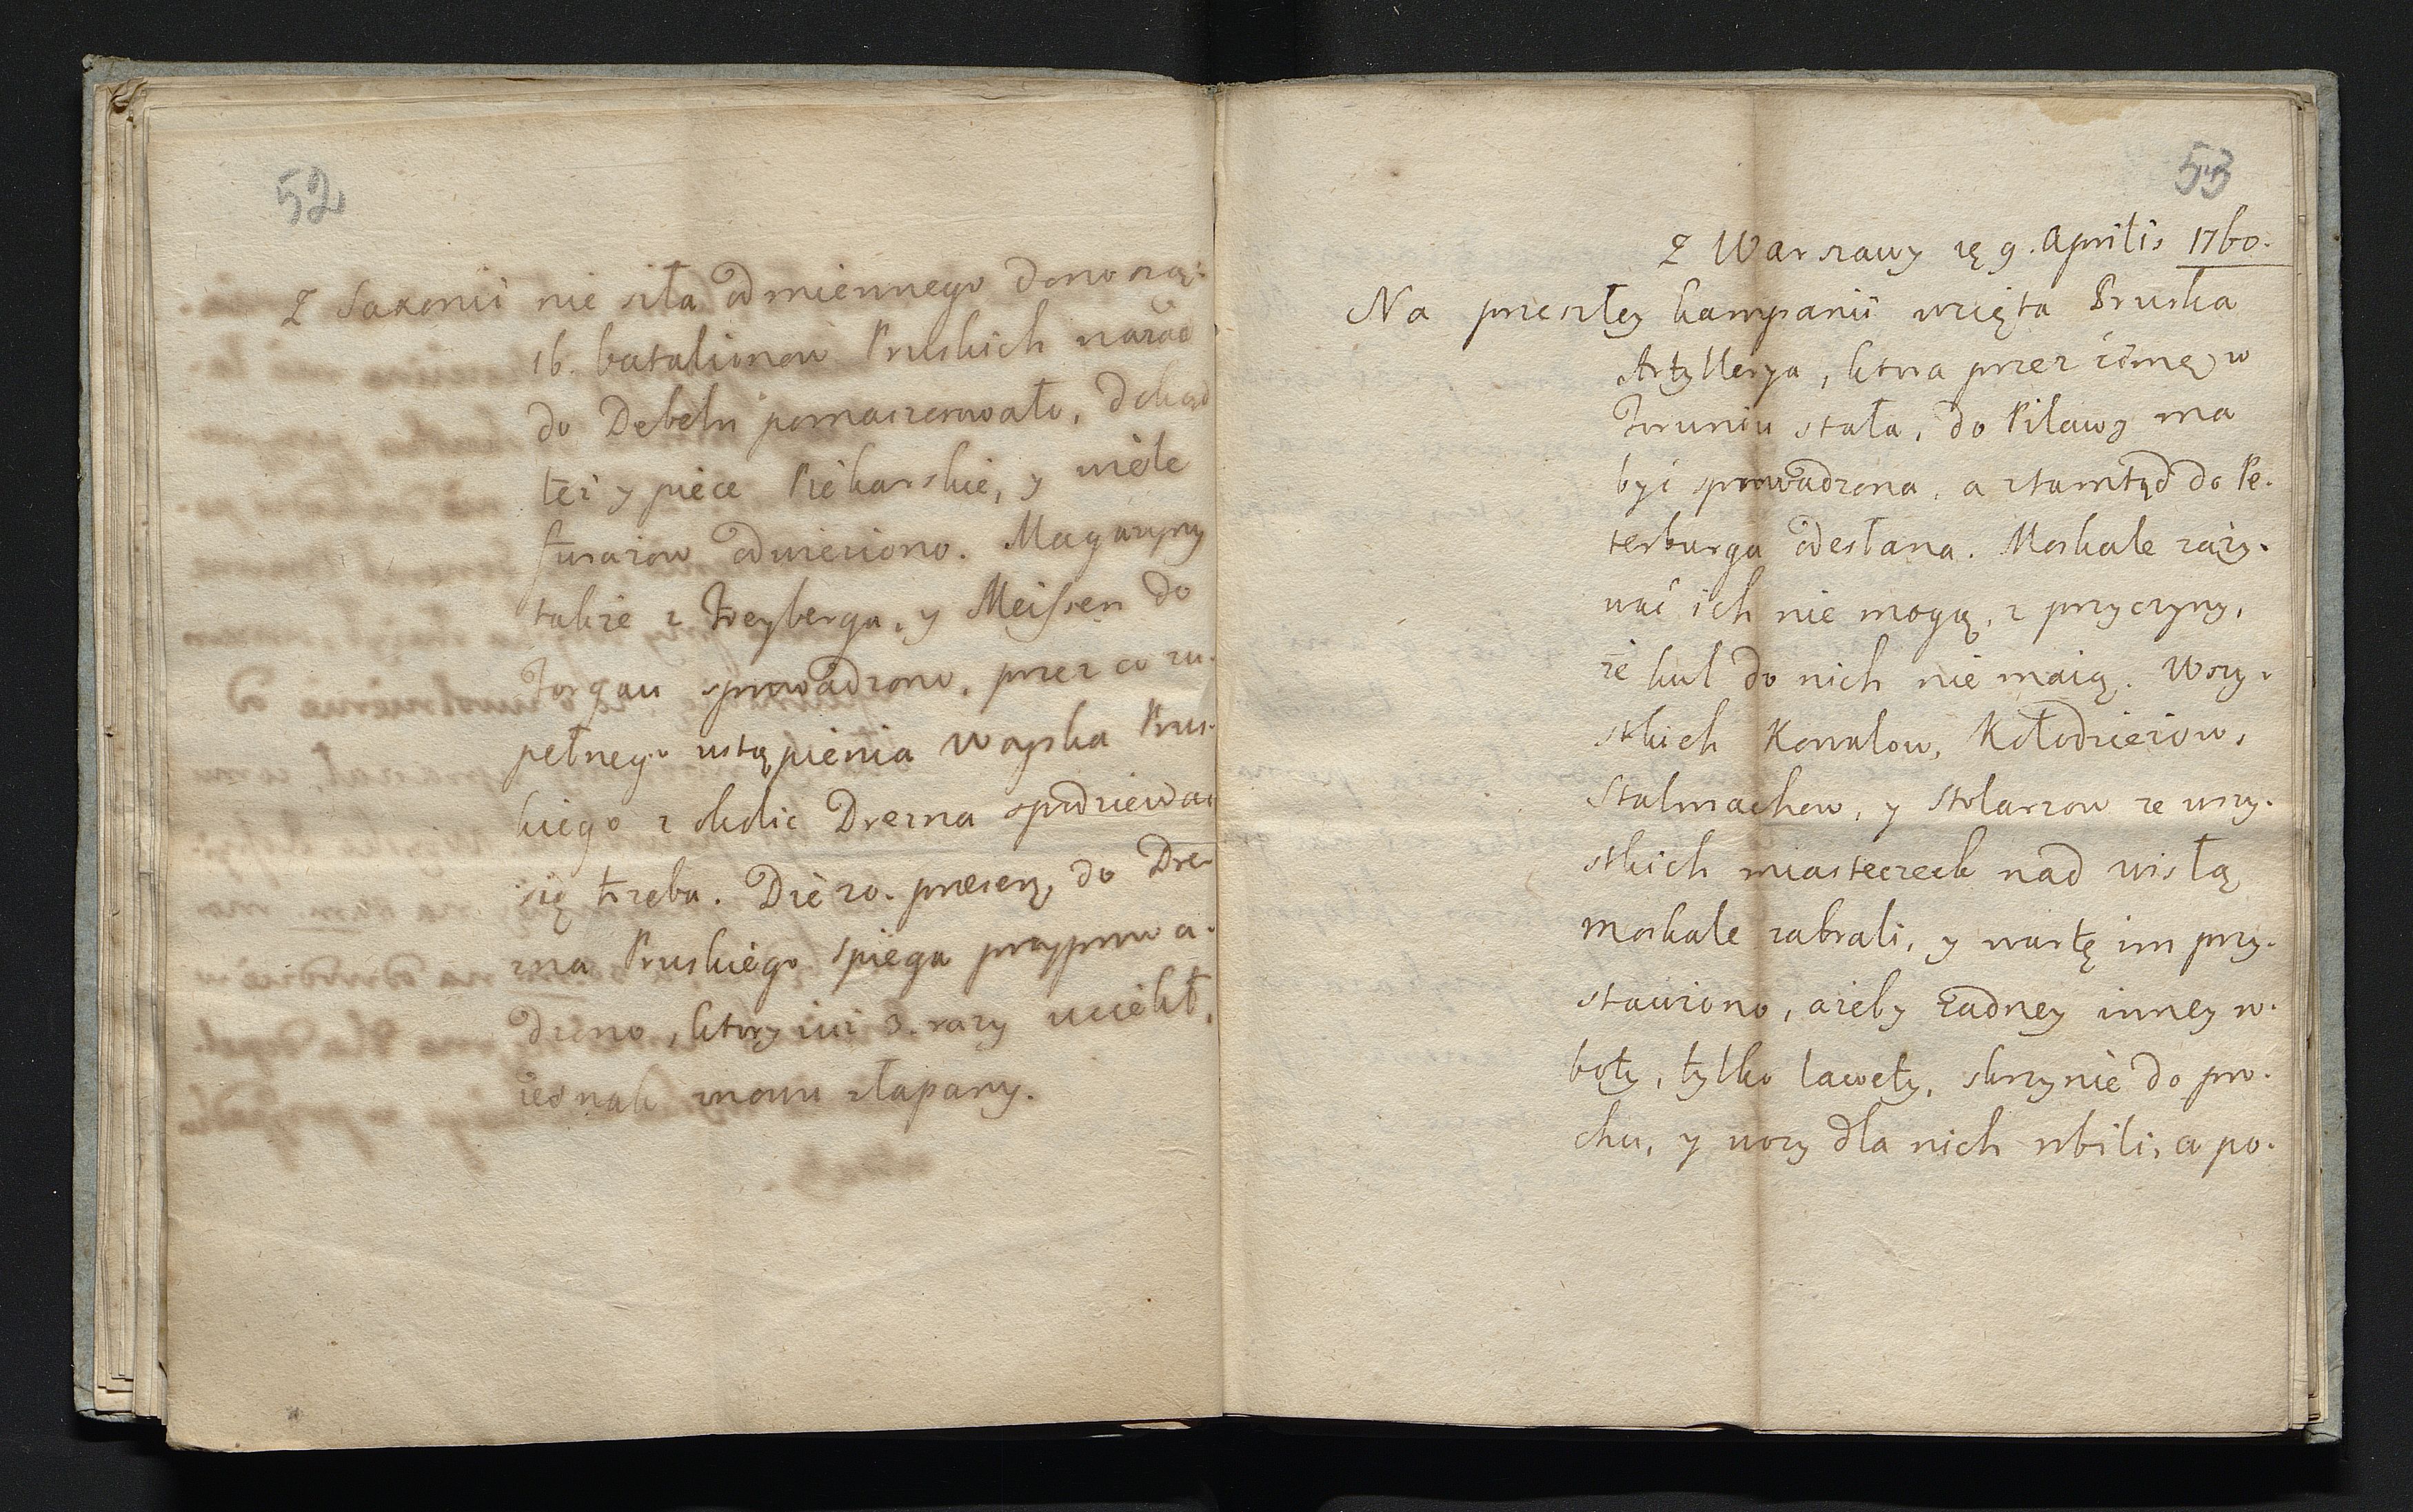 52
Z Saxonii nie siła odmiennego donoszą:
16. batalionow Pruskich nazad
do Debeln pomaszerowało, dokąd
też y piece Piekarskie, y wiele
furażow odwieziono. Magazyny
także z Freyberga, y Meissen do
Torgau sprowadzono, przez co zu-
pełnego ustąpienia Woyska Prus-
kiego z okolic Drezna spodziewać
się trzeba. Die 20. praesen, do Dre-
zna Pruskiego Spiega przyprowa-
dzono, ktory iuż 3. razy uciekł,
iednak znowu złapany.
53
Z Warszawy ię 9. Aprilis 1760.
Na przeszłey kampanii wzięta Pruska
Artyllerya, ktora przez zimę w
Toruniu stała, do Pilawy ma
być sprowadzona, a ztamtąd do Pe-
terburga odesłana. Moskale zaży-
wać ich nie mogą, z przyczyny,
że kul do nich nie maią. Wszy-
stkich Kowalow, Kołodzieiow,
Stalmachow, y Stolarzow ze wszy-
stkich miasteczek nad wisłą
Moskale zabrali, y wartę im przy-
stawiono, ażeby żadney inney ro-
boty, tylko lawety, skrzynie do pro-
chu, y wozy dla nich robili, a po-